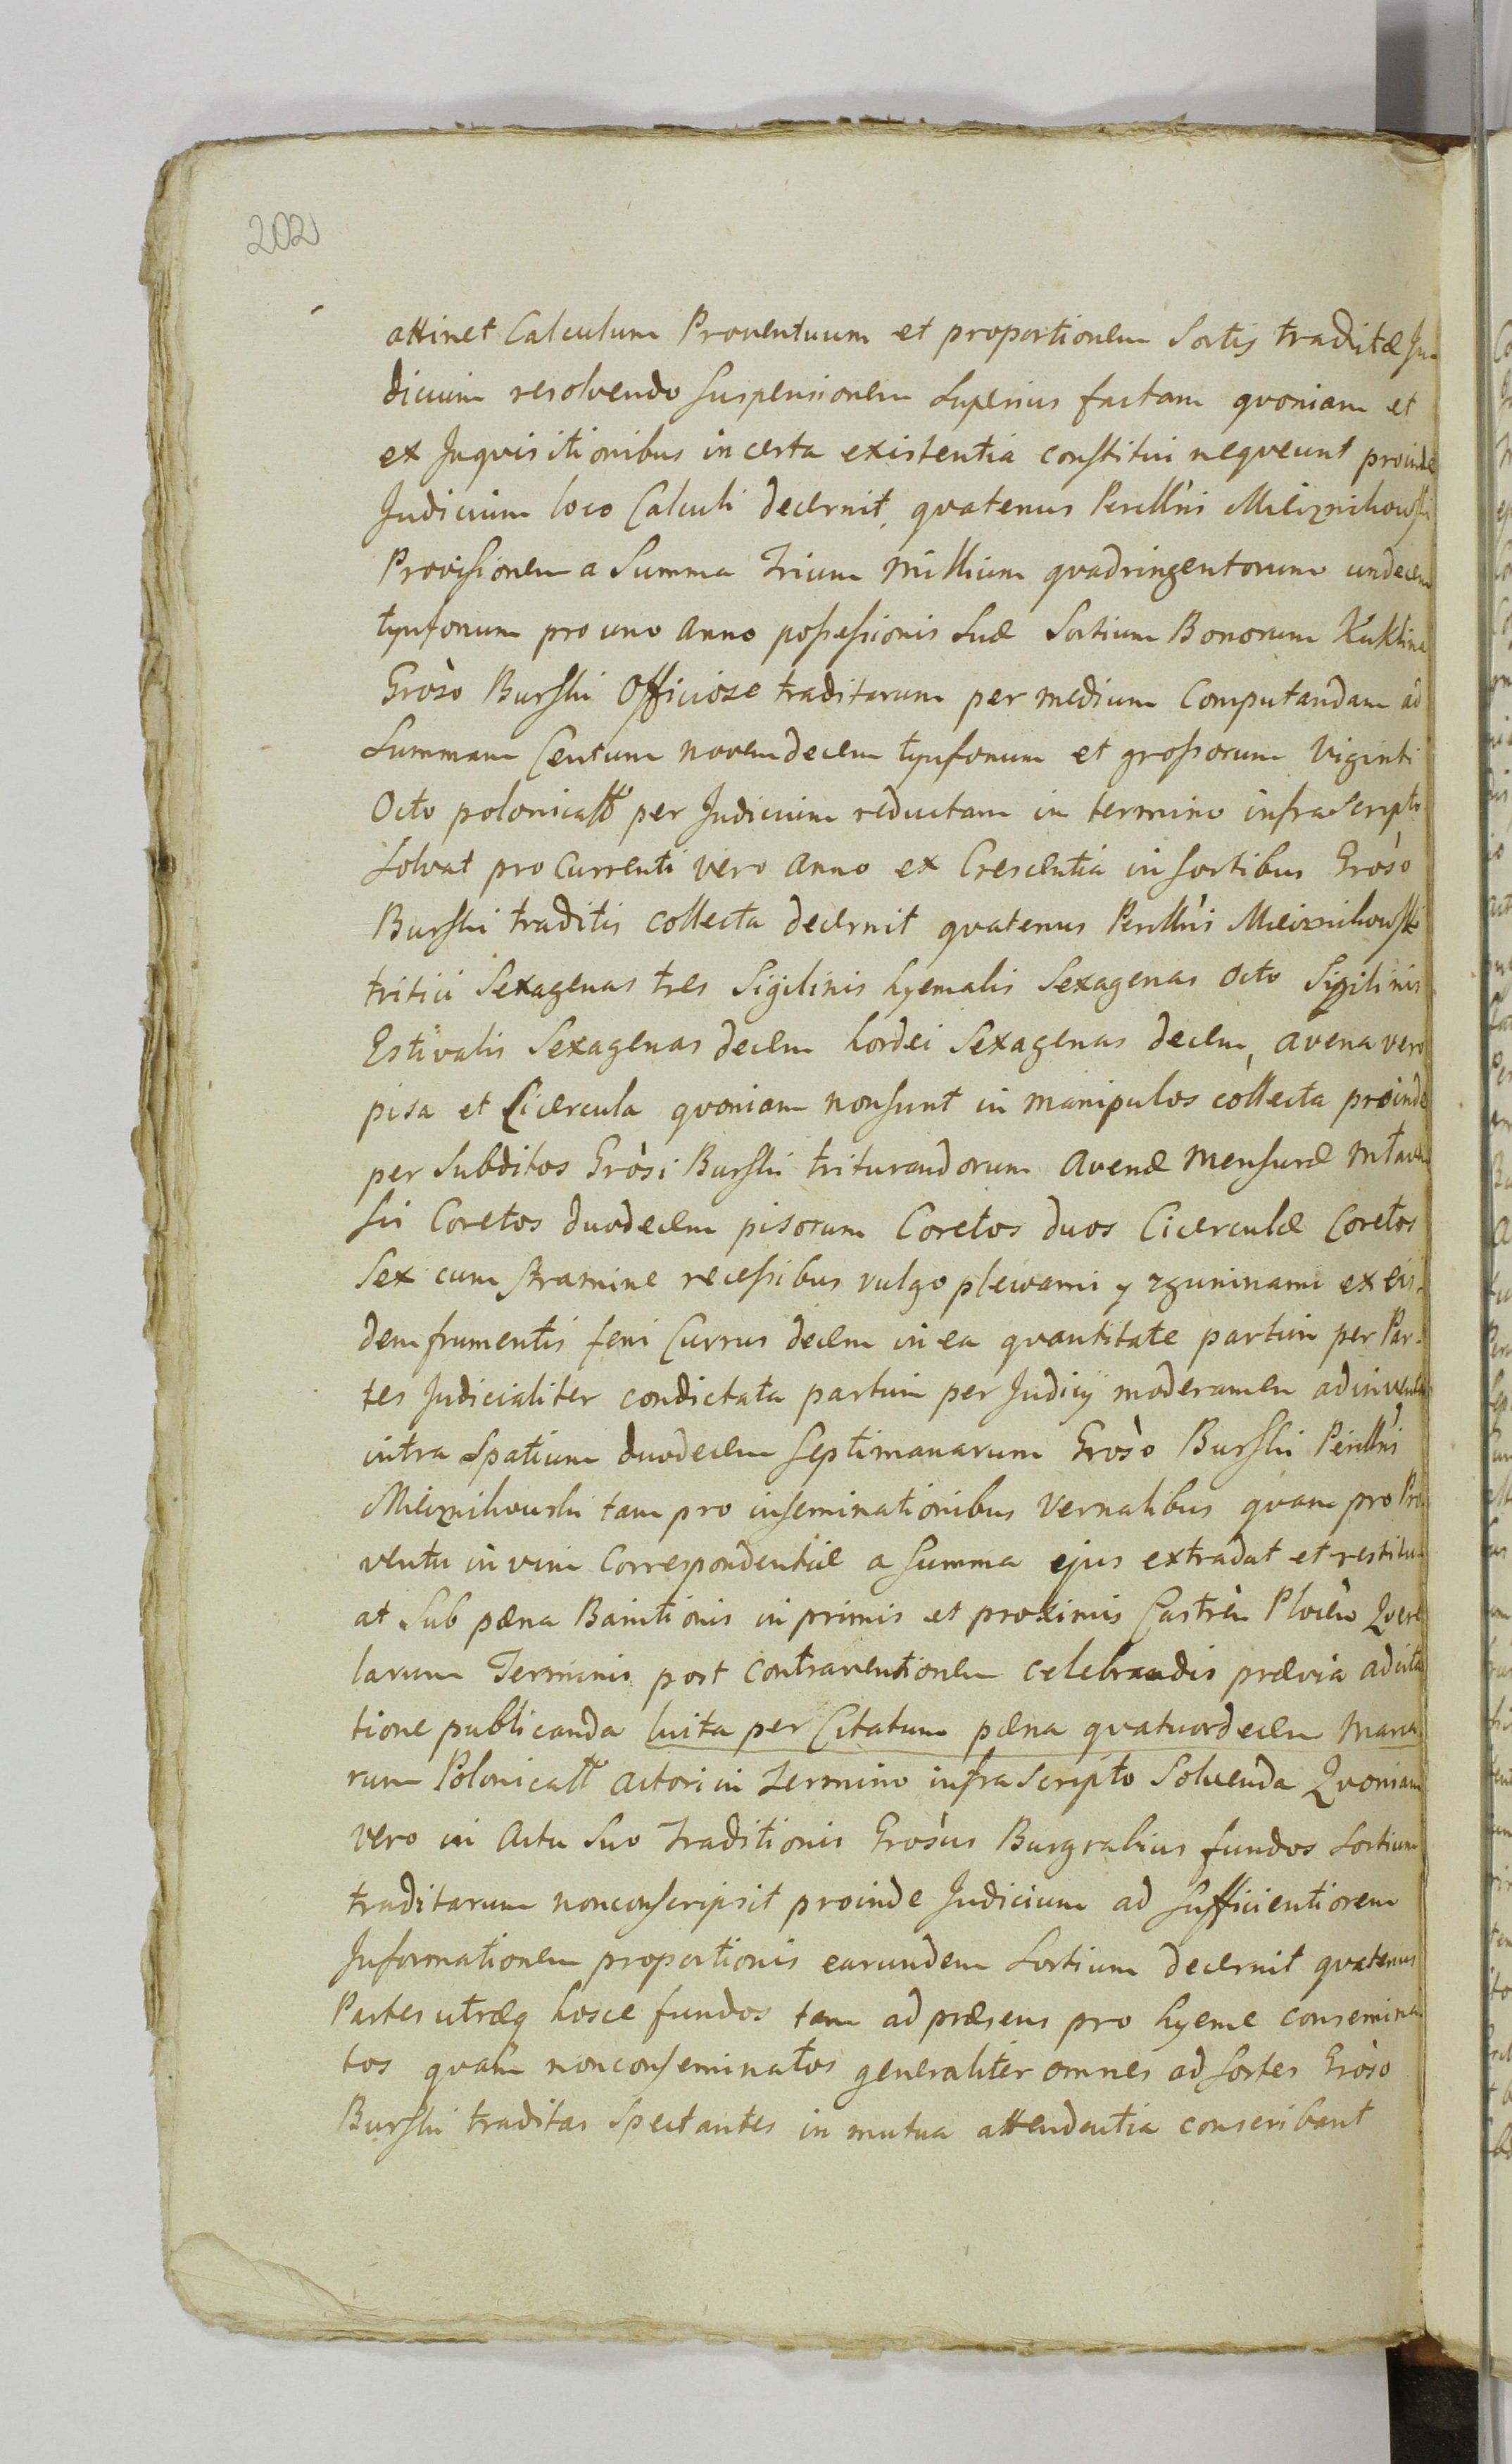 202
attinet Calculum Proventuum et proportionem Sortis traditæ Ju
dicium resolvendo suspensionem superius factam quoniam et
ex Inquisitionibus in certa existentia constitui nequeunt proinde
Judicium loco Calculi decernit, quatenus Perillris Mieiznikowski
Provisionem a Summa Trium Millium quadringentorum undecem
tynfonum pro uno Anno possessionis suæ Sortium Bonorum Kuklina
Groso Burski Officiose traditarum per medium Computandam ad
Summam Centum novemdecem tynfonum et grossorum Viginti
Octo polonicall per Judicium reductam in termino infrascripto
Solvat pro Currenti vero Anno ex Crescentia in sortibus Groso
Burski traditis collecta decernit quatenus Perillris Mieiznikowski
tritici Sexagenas tres Sigilinis hyemalis Sexagenas Octo Sigilinis
Estivalis Sexagenas decem hordei Sexagenas decem, avena vero
pisa et Cicercula quoniam non sunt in manipulos collecta proinde
per Subditos Grosi Burski triturandorum Avenæ Mensuræ Mlaven
sis Coretos duodecem pisorum Coretos duos Cicerculæ Coretos
Sex cum stramine recessibus vulgo plewami y zguninami ex eis-
dem frumentis feni Currus decem in ea quantitate partim per Par-
tes Judicialiter condictata partim per Judicij moderamen adinventa
intra Spatium duodecem septimanarum Groso Burski Perillris
Mieiznikowski tam pro inseminationibus Vernalibus quam pro Pro
ventu in vim Correspondentiæ a summa ejus extradat et restitu
at Sub pæna Banitionis in primis et proximis Castreñ Ploceñ Quere
larum Terminis post contraventionem celebrandis prævia adcita
tione publicanda luita per Citatum pæna quatuordecem Marca
rum Polonicall actori in Termino infrascripto Solvenda Quoniam
vero in Actu Suo Traditionis Grosus Burgrabius fundos Sortium
traditarum nonconscripsit proinde Judicium ad sufficientiorem
Informationem proportionis earundem Sortium decernit quatenus
Partes utræq hosce fundos tam ad præsens pro hyeme consemina
tos quam nonconseminatos generaliter omnes ad sortes Groso
Burski traditas Spectantes in mutua attendentia conscribant